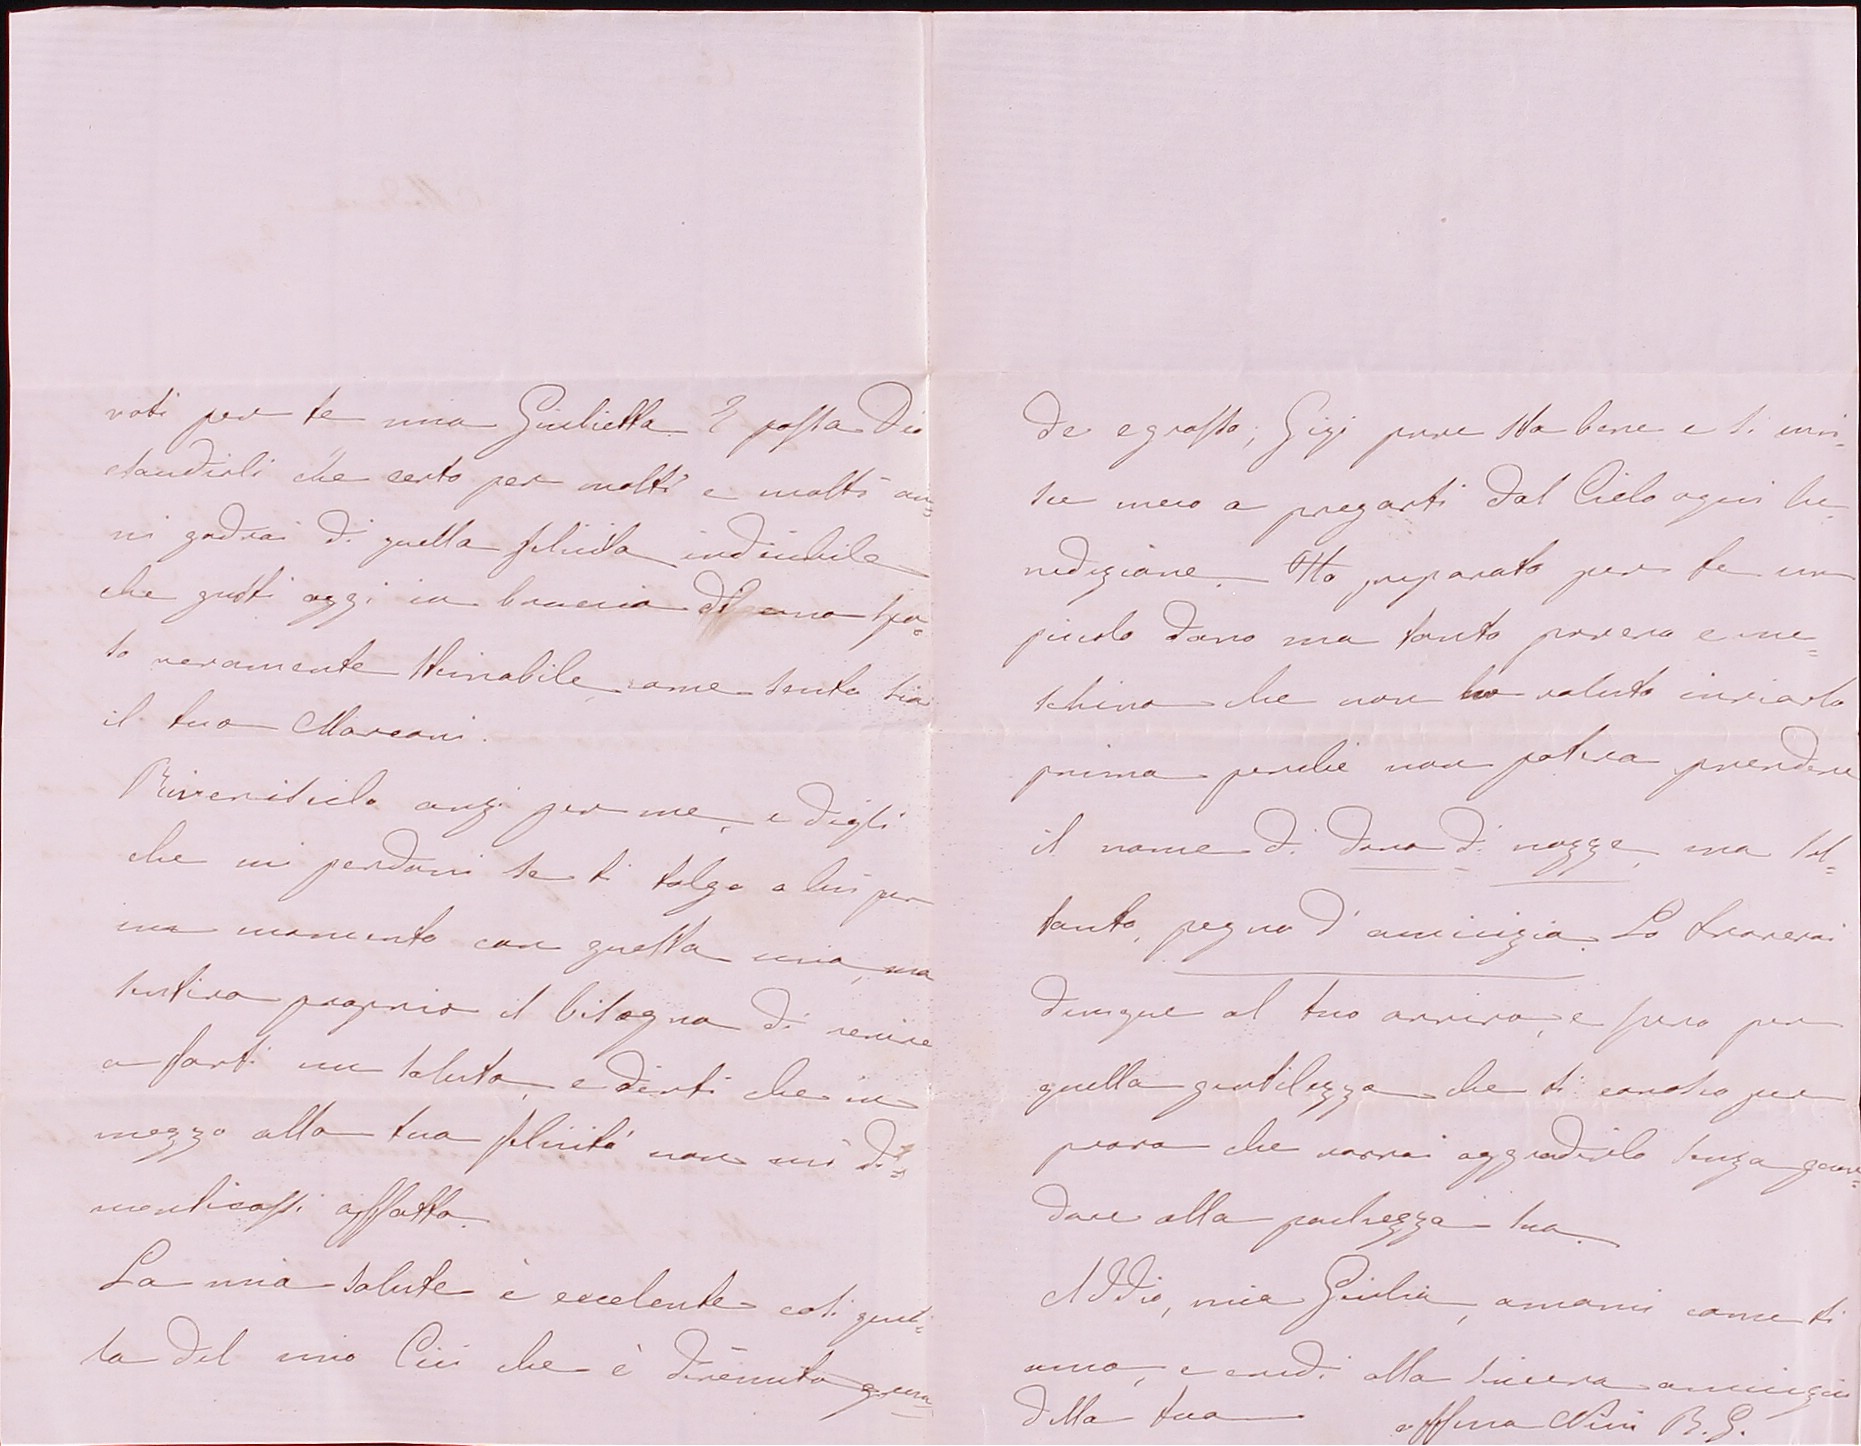 voti per te mia Giulietta. E possa Dio
esaudirli che certo per molti e molti an=
ni godrai di quella felicità indicibile
che gusti oggi in braccio di uno spo=
so veramente stimabile come sento sia
il tuo Marconi.
Riveriscilo anzi per me, e digli
che mi perdoni se ti tolgo a lui per
un momento con questa mia, ma
sentivo proprio il bisogno di venire
a farti un saluto, e dirti che in
mezzo alla tua felicità non mi di=
menticassi affatto.
La mia salute è eccelente così quel=
la del mio Cici che è divenuto gran=
de e grosso; Gigi pure sta bene e si uni=
sce meco a pregarti dal Cielo ogni be=
nedizione. Ho preparato per te un
piccolo dono ma tanto povero e me=
schino che non ho voluto inviarlo
prima perché non potea prendere
il nome di dono di nozze, ma sol=
tanto, pegno d'amicizia. Lo troverai
dunque al tuo arrivo, e spero per
quella gentilezza che ti conosco per
prova che vorrai aggradirlo senza guar=
dare alla pochezza sua.
Addio, mia Giulia, amami come ti
amo, e credi alla sincera amicizia
della tua affma Nini B. G.